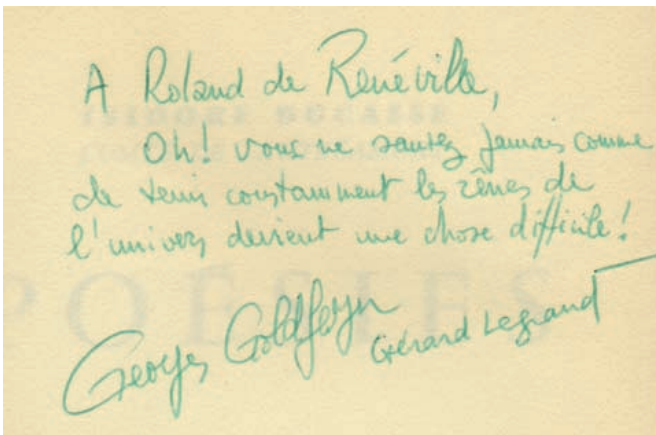 A Roland de Renéville,
Oh! vous ne saurez jamais comme
de tenir constamment les rênes de
l'univers devient une chose difficile!
Georges Goldfayn
Gérard Legrand
ISIDORE DUCASSE
POÉSIES